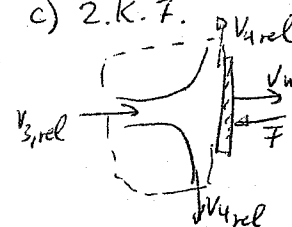 c) 2. K. F.
V4 rel
Vu
V3,rel
F
V4 rel